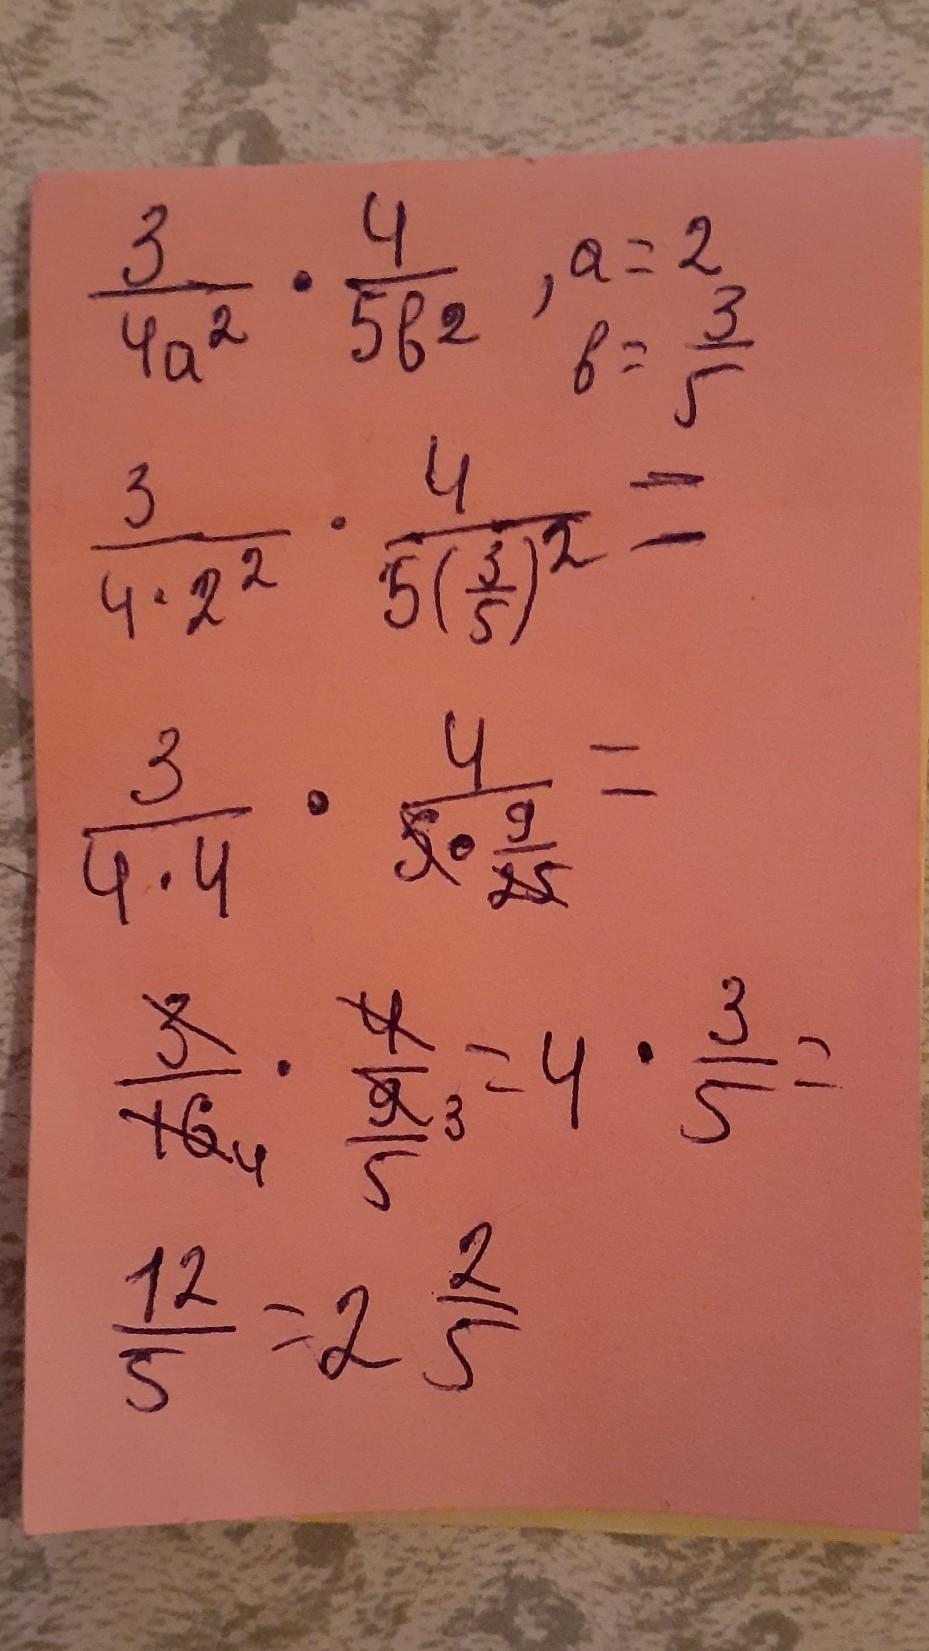 3/4a² · 4/5b², a = 2
b = 3/5
3/4·2² · 4/5(3/5)² =
3/4·4 · 4/5·9/25 =
3/16 4 · 4/9/5 3 = 4 · 3/5 =
12/5 = 2 2/5